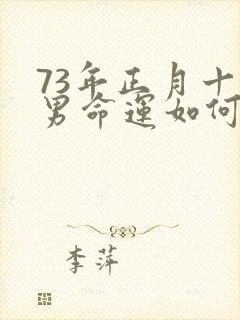 73年正月十
男命运如何
李萍